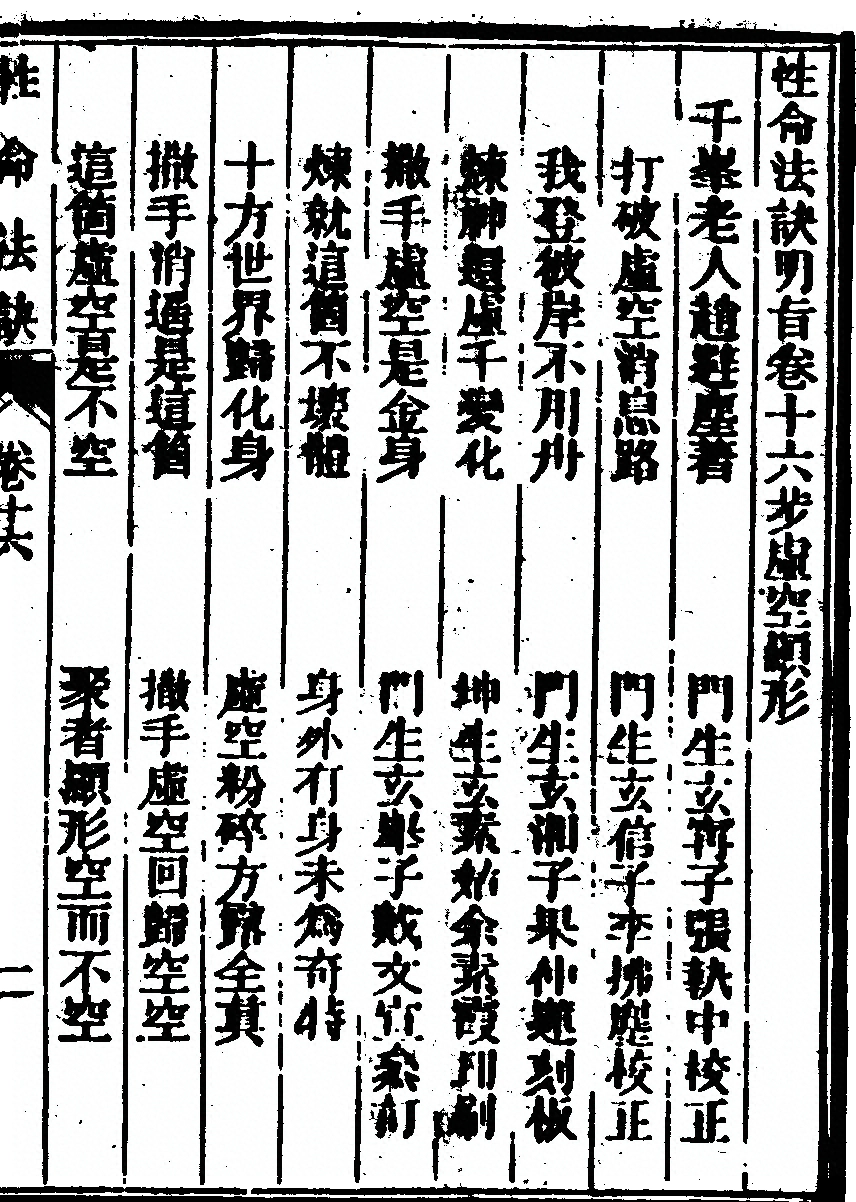 性命法訣明旨卷十六步虛空顯形
千峯老人趙避塵著 門生玄甯子張執中校正
打破虛空消息路 門生玄信子李拂塵校正
我登彼岸不用舟 門生玄湘子果仲蓮刻板
煉神還虛千變化 坤生玄素姑余素霞印刷
撒手虛空是金身 門生玄畢子戴文宣叅訂
煉就這箇不壞體 身外有身未為奇特
十方世界歸化身 虛空粉碎方露全真
撒手消遙是這箇 撒手虛空回歸空空
這箇虛空是不空 聚者顯形空而不空
性命法訣 卷十六 二